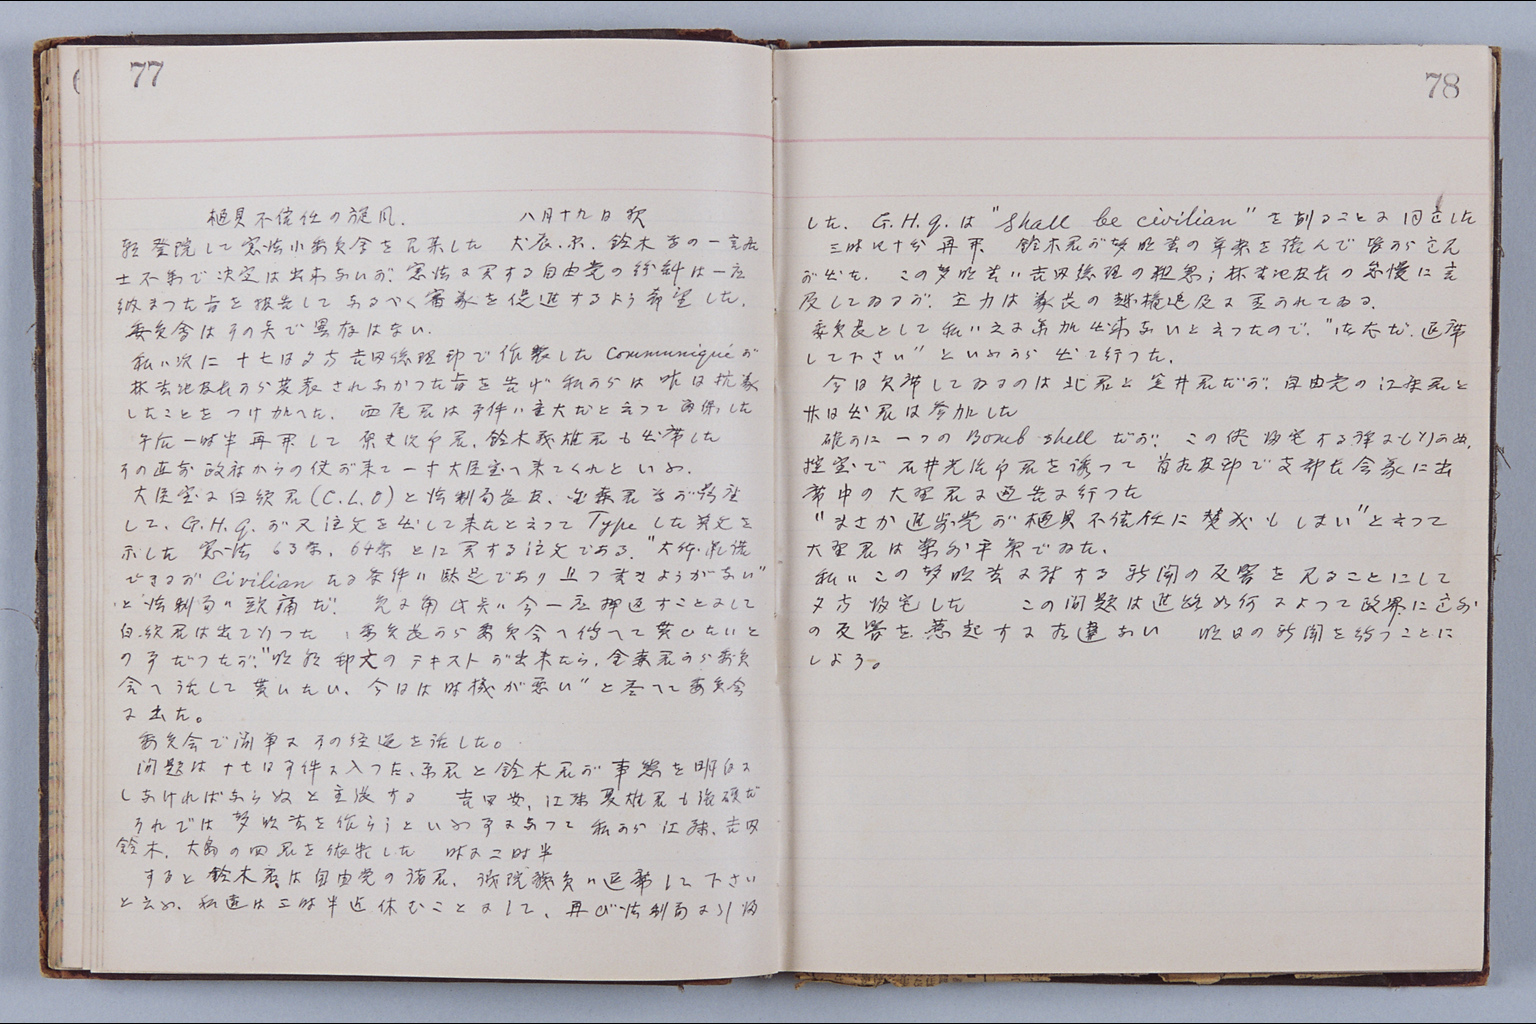 77
樋貝不信任の旋風. 八月十九日 秋
登院して憲法小委員会を見乗した 犬養、原、鈴木君の一言居
士不参で決定は出来ないが 憲法に関する自由党の紛糾は一応
納まつた旨を報告して なるべく審議を促進するよう希望した.
委員会はその点で異存はない.
私は次に 十七日夕方吉田総理邸で作製した communiquéが
林書記長から発表されなかつた旨を告げ 私からは 昨日抗議
したことをつけ加へた. 西尾君は事件は重大だと云つて 留保した
午后一時半 再開して 原夫次郎君、鈴木義雄君も出席した
その直前 政府からの使が来て 一寸大臣室へ来てくれといふ.
大臣室に白洲君(C.L.O)と法制局長官、金森君等が
して、G.H.Q.が又注文を出して来たと云つて Typeした英文を
示した 憲法 63条、64条 とに関する注文である. "大体承諾
できるが Civilian なる条件は駄足であり 且つ書きようがない"
と法制局は頭痛だ! 先に角此点は今一応押返すことにして
白洲君は出て行つた 委員長から委員会へ傳へて貰ひたいと
の事だつたが、"明朝 邦文のテキストが出来たら、金森君から委員
会へ話して貰いたい、今日は時機が悪い"と答へて委員会
に出た。
委員会で簡単に その経過を話した。
問題は 十七日事件に入つた、原君と鈴木君が 事態を明白に
しなければならぬと主張する 吉田安、江藤夏雄君も強硬だ
それでは 声明書を作らうといふ事になつて 私から 江藤、吉田
鈴木、大島の四君を依嘱した 時に二時半
すると 鈴木君は自由党の諸君、議院職員は退席して下さい
と云ふ、私達は三時半迄休むことにして、再び法制局に引帰
78
した. G.H.Q.は "Shall be civilian" を削ることに同意した
三時四十分 再開 鈴木君が声明書の草案を読んで 皆から意見
が出た. この声明書は吉田総理の; 林書記長の怠慢に言
及してゐるが、主力は議長の追及に置かれてゐる.
委員長として 私は之に参加出来ないと云つたので、"結だ、退席
して下さい" といふから 出て行つた.
今日欠席してゐるのは 北君と笠井君だが、自由党の江藤君と
廿日出君は参加した
確かに 一つの Bomb shell だが、 この儘 帰宅する譯にも行かぬ.
控室で 石井光次郎君を誘つて 首相官邸で 支部長会議に出
席中の 大野君に通告に行つた
"まさか進歩党が樋貝不信任に賛成もしまい" と云つて
大野君は案外平気でゐた.
私は この声明書に対する 新聞の反響を見ることにして
夕方 帰宅した この問題は進路如何によつて 政界に意外
の反響を惹起するに相違ない 明日の新聞を待つことに
しよう。